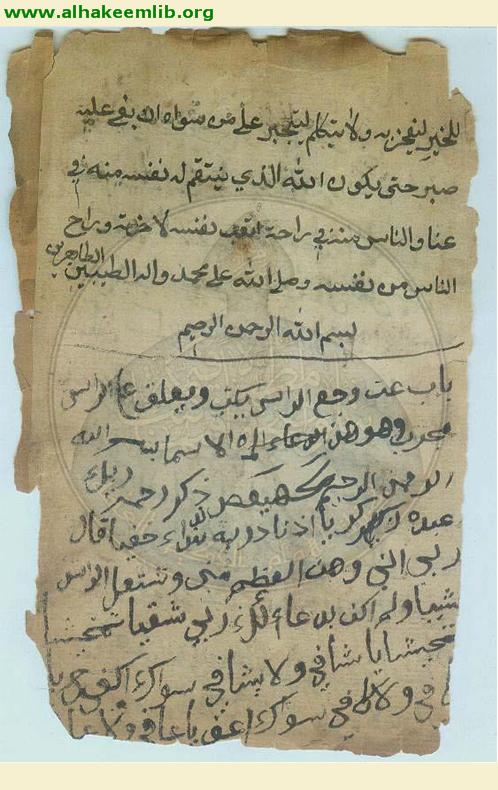 www.alhakeemlib.org
للخير ليفجر به ولا يتكلم ليتجبر على من سواه ان بغى عليه
صبر حتى يكون الله الذي ينتقم له نفسه منه في
عنا والناس منه في راحة اتعب نفسه لاخرته وراح
الناس من نفسه وصلى الله على محمد واله الطيبين الطاهرين
بسم الله الرحمن الرحيم
باب عن وجع الراس يكتب ويعلق على الراس
مجرب وهو هذا الدعاء الاسما بسم الله
الرحمن الرحيم كهيعص ذكر رحمة ربك
عبده زكريا اذ نادى ربه نداء خفيا قال
ربي اني وهن العظم مني وشتعل الراس
شيبا ولم اكن بدعائك ربي شقيا
يا شافي ولا يشافي سواك
في ولا في سواك يا عافي ولا